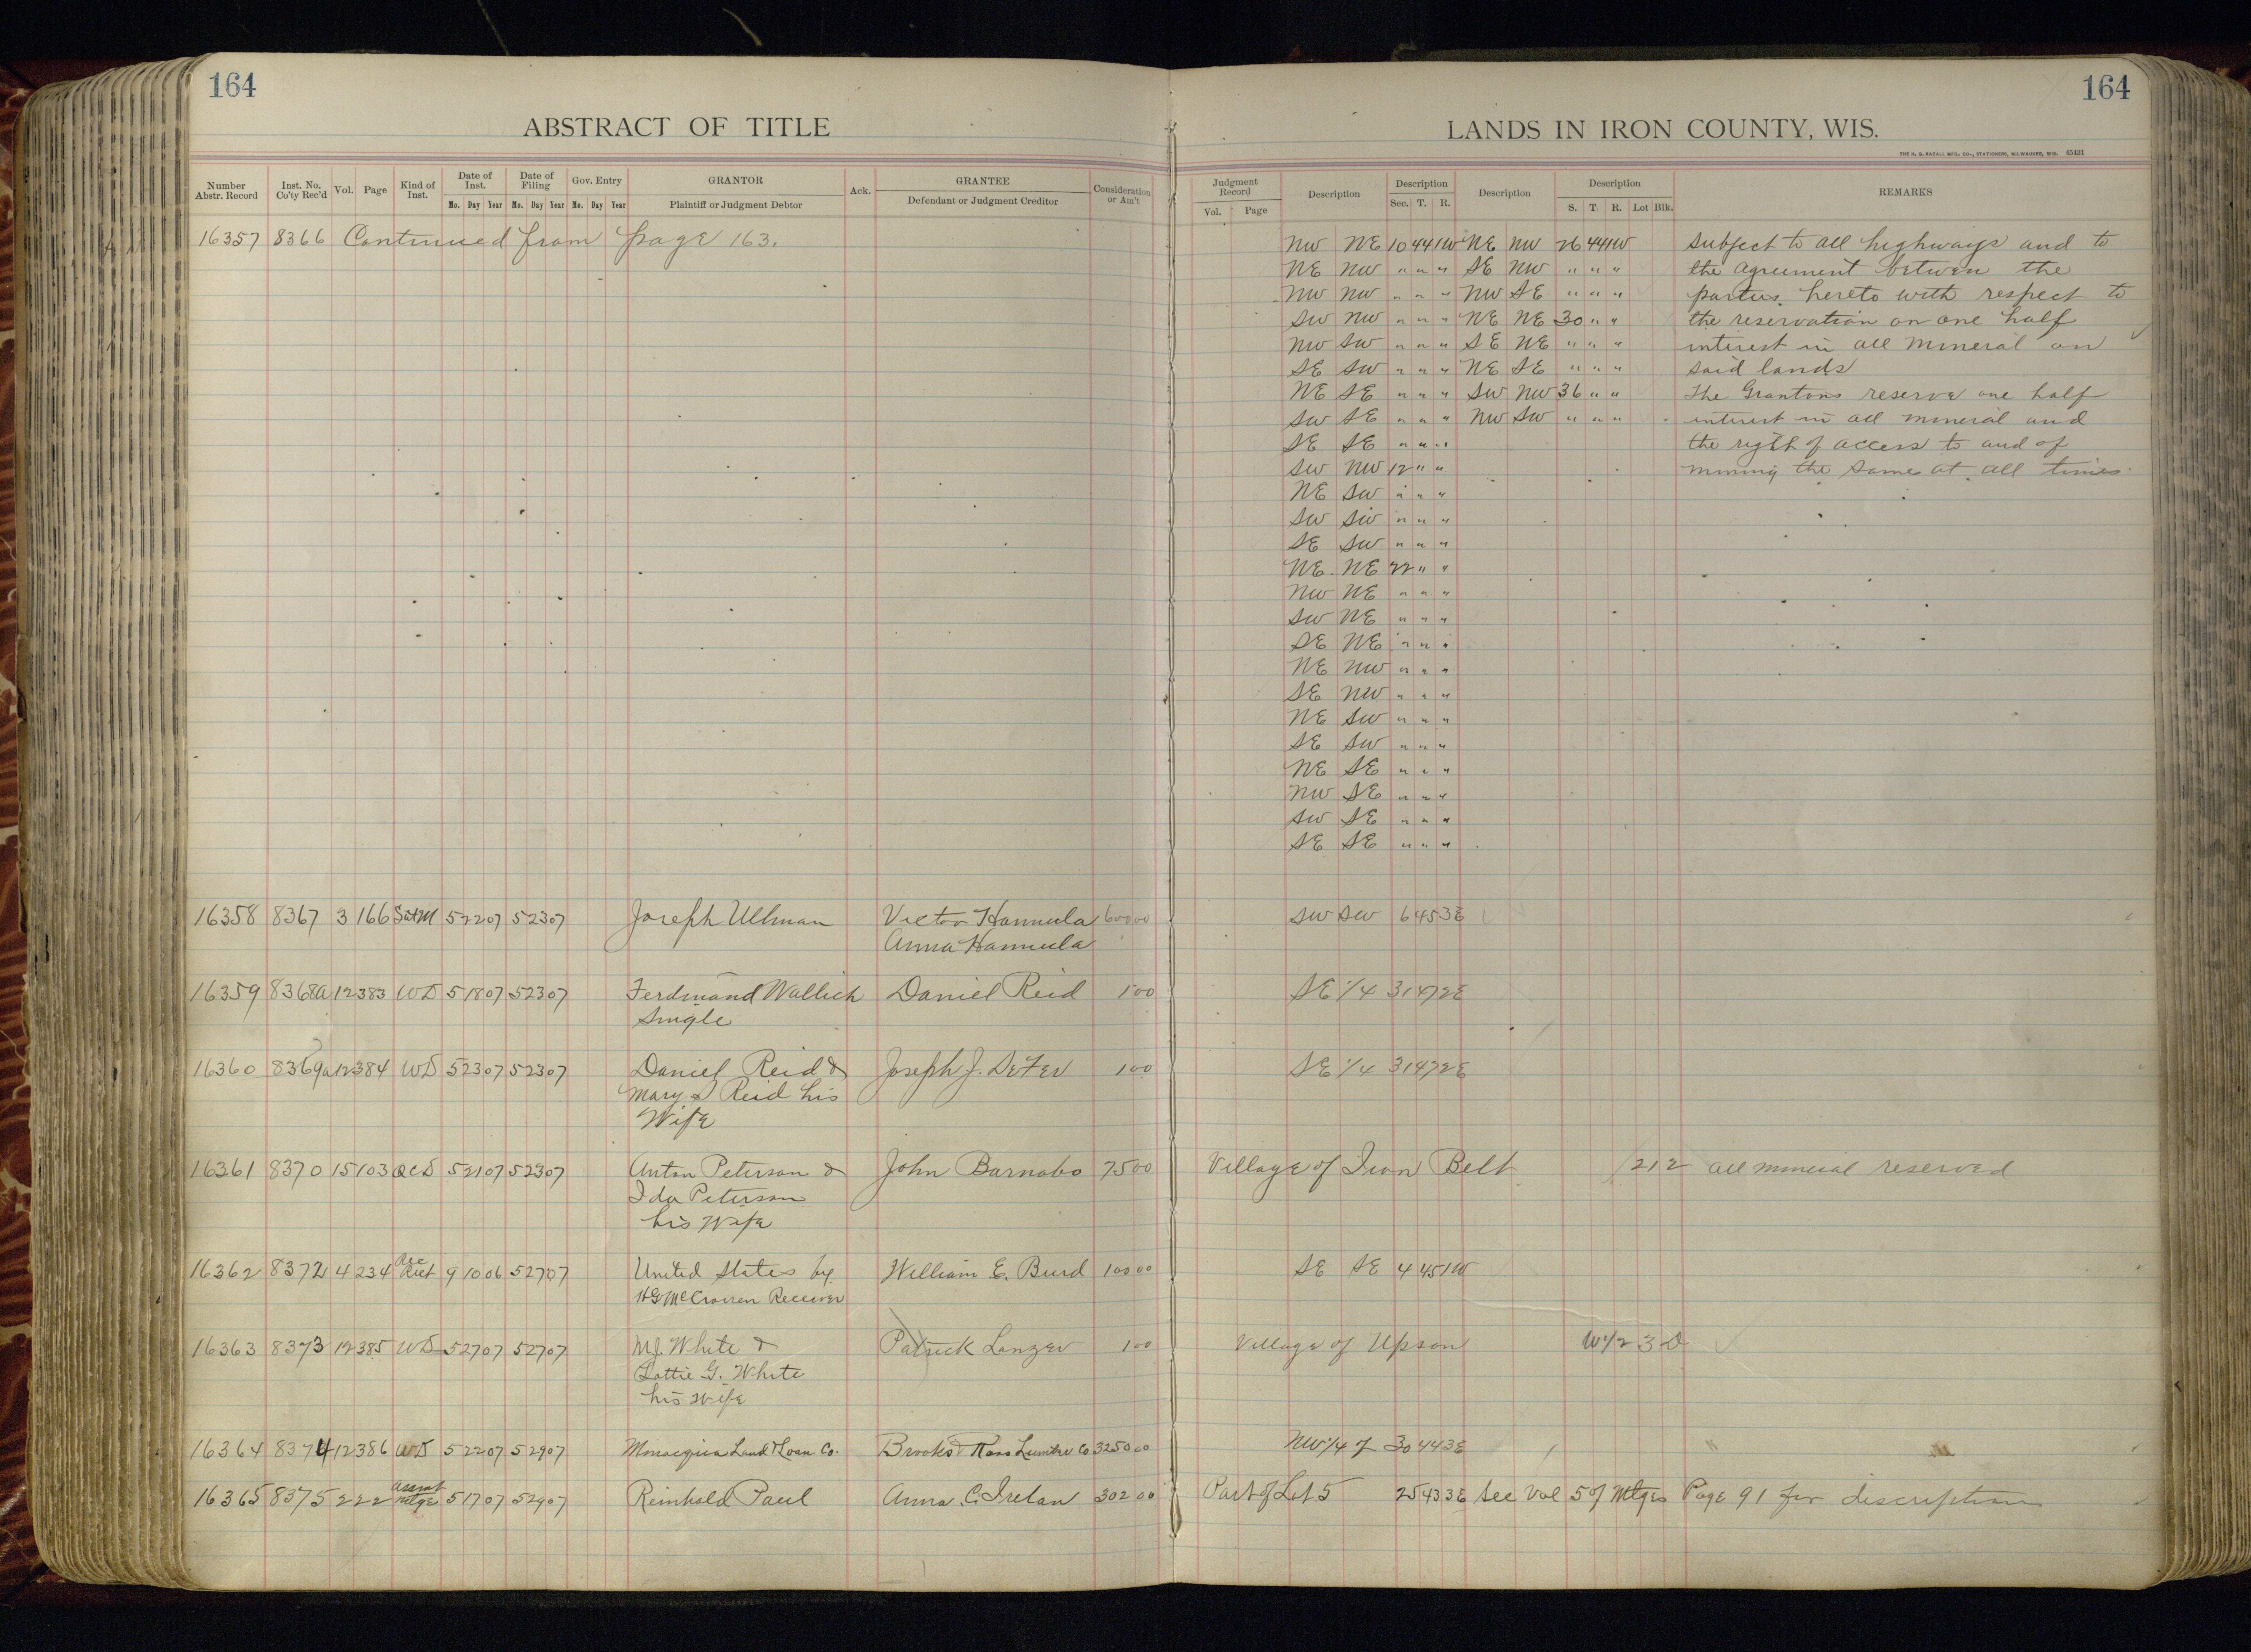 164
ABSTRACT OF TITLE
Number Abstr. Record Inst. No. Co'ty Rec'd Vol. Page Kind of Inst. Date of Inst. Date of Filing Gov. Entry GRANTOR Ack. GRANTEE Consideration or Am't
Mo. Day Year Mo. Day Year Mo. Day Year Plaintiff or Judgment Debtor Defendant or Judgment Creditor
16357 8366 Continued from page 163.
16358 8367 3 166 Sat M 5 22 07 5 23 07 Joseph Ullman Victor Hannula 600 00
Anna Hannula
16359 8368a 12 383 WD 5 18 07 5 23 07 Ferdinand Wallich Daniel Reid 1 00
Single
16360 8369a 12 384 WD 5 23 07 5 23 07 Daniel Reid & Joseph J. DeFer 1 00
Mary S Reid his
Wife
16361 8370 15 103 QCD 5 21 07 5 23 07 Anton Peterson & John Barnabo 75 00
Ida Peterson
his Wife
16362 8372 4 234 Rec Rect 9 10 06 5 27 07 United States by William E. Burd 100 00
Receiver
16363 8373 12 385 WD 5 27 07 5 27 07 M.J. White & Patrick Lanzer 1 00
Lottie G. White
his Wife
16364 8374 12 386 WD 5 22 07 5 29 07 Land & Loan Co. Brooks & Ross Lumber Co 3250 00
16365 8375 2 22 Assmt Mtge 5 17 07 5 29 07 Reinhold Paul Anna C. Irelan 302 00
164
LANDS IN IRON COUNTY, WIS.
THE H. G. RAZALL MFG. CO., STATIONERS, MILWAUKEE, WIS. 45431
Judgment Record Description Description Description Description REMARKS
Vol. Page Sec. T. R. S. T. R. Lot Blk.
NW NE 10 44 1W NE NW 26 44 1W Subject to all highways and to
NE NW " " " SE NW " " " the agreement between the
NW NW " " " NW SE " " " parties hereto with respect to
SW NW " " " NE NE 30 " " the reservation on one half
NW SW " " " SE NE " " " interest in all mineral on
SE SW " " " NE SE " " " said lands
NE SE " " " SW NW 36 " " The Grantors reserve one half
SW SE " " " NW SW " " " interest in all mineral and
SE SE " " " the right of access to and of
SW NW 12 " " mining the same at all times.
NE SW " " "
SW SW " " "
SE SW " " "
NE NE 22 " "
NW NE " " "
SW NE " " "
SE NE " " "
NE NW " " "
SE NW " " "
NE SW " " "
SE SW " " "
NE SE " " "
NW SE " " "
SW SE " " "
SE SE " " "
SW SW 6 45 3E
SE 1/4 31 47 2E
SE 1/4 31 47 2E
Village of Iron Belt 21 2 all mineral reserved
SE SE 4 45 1W
Village of Upson W 1/2 3 D
NW 1/4 of 30 44 3E
Part of Lot 5 25 43 3E See Vol 5 of Mtges Page 91 for discription